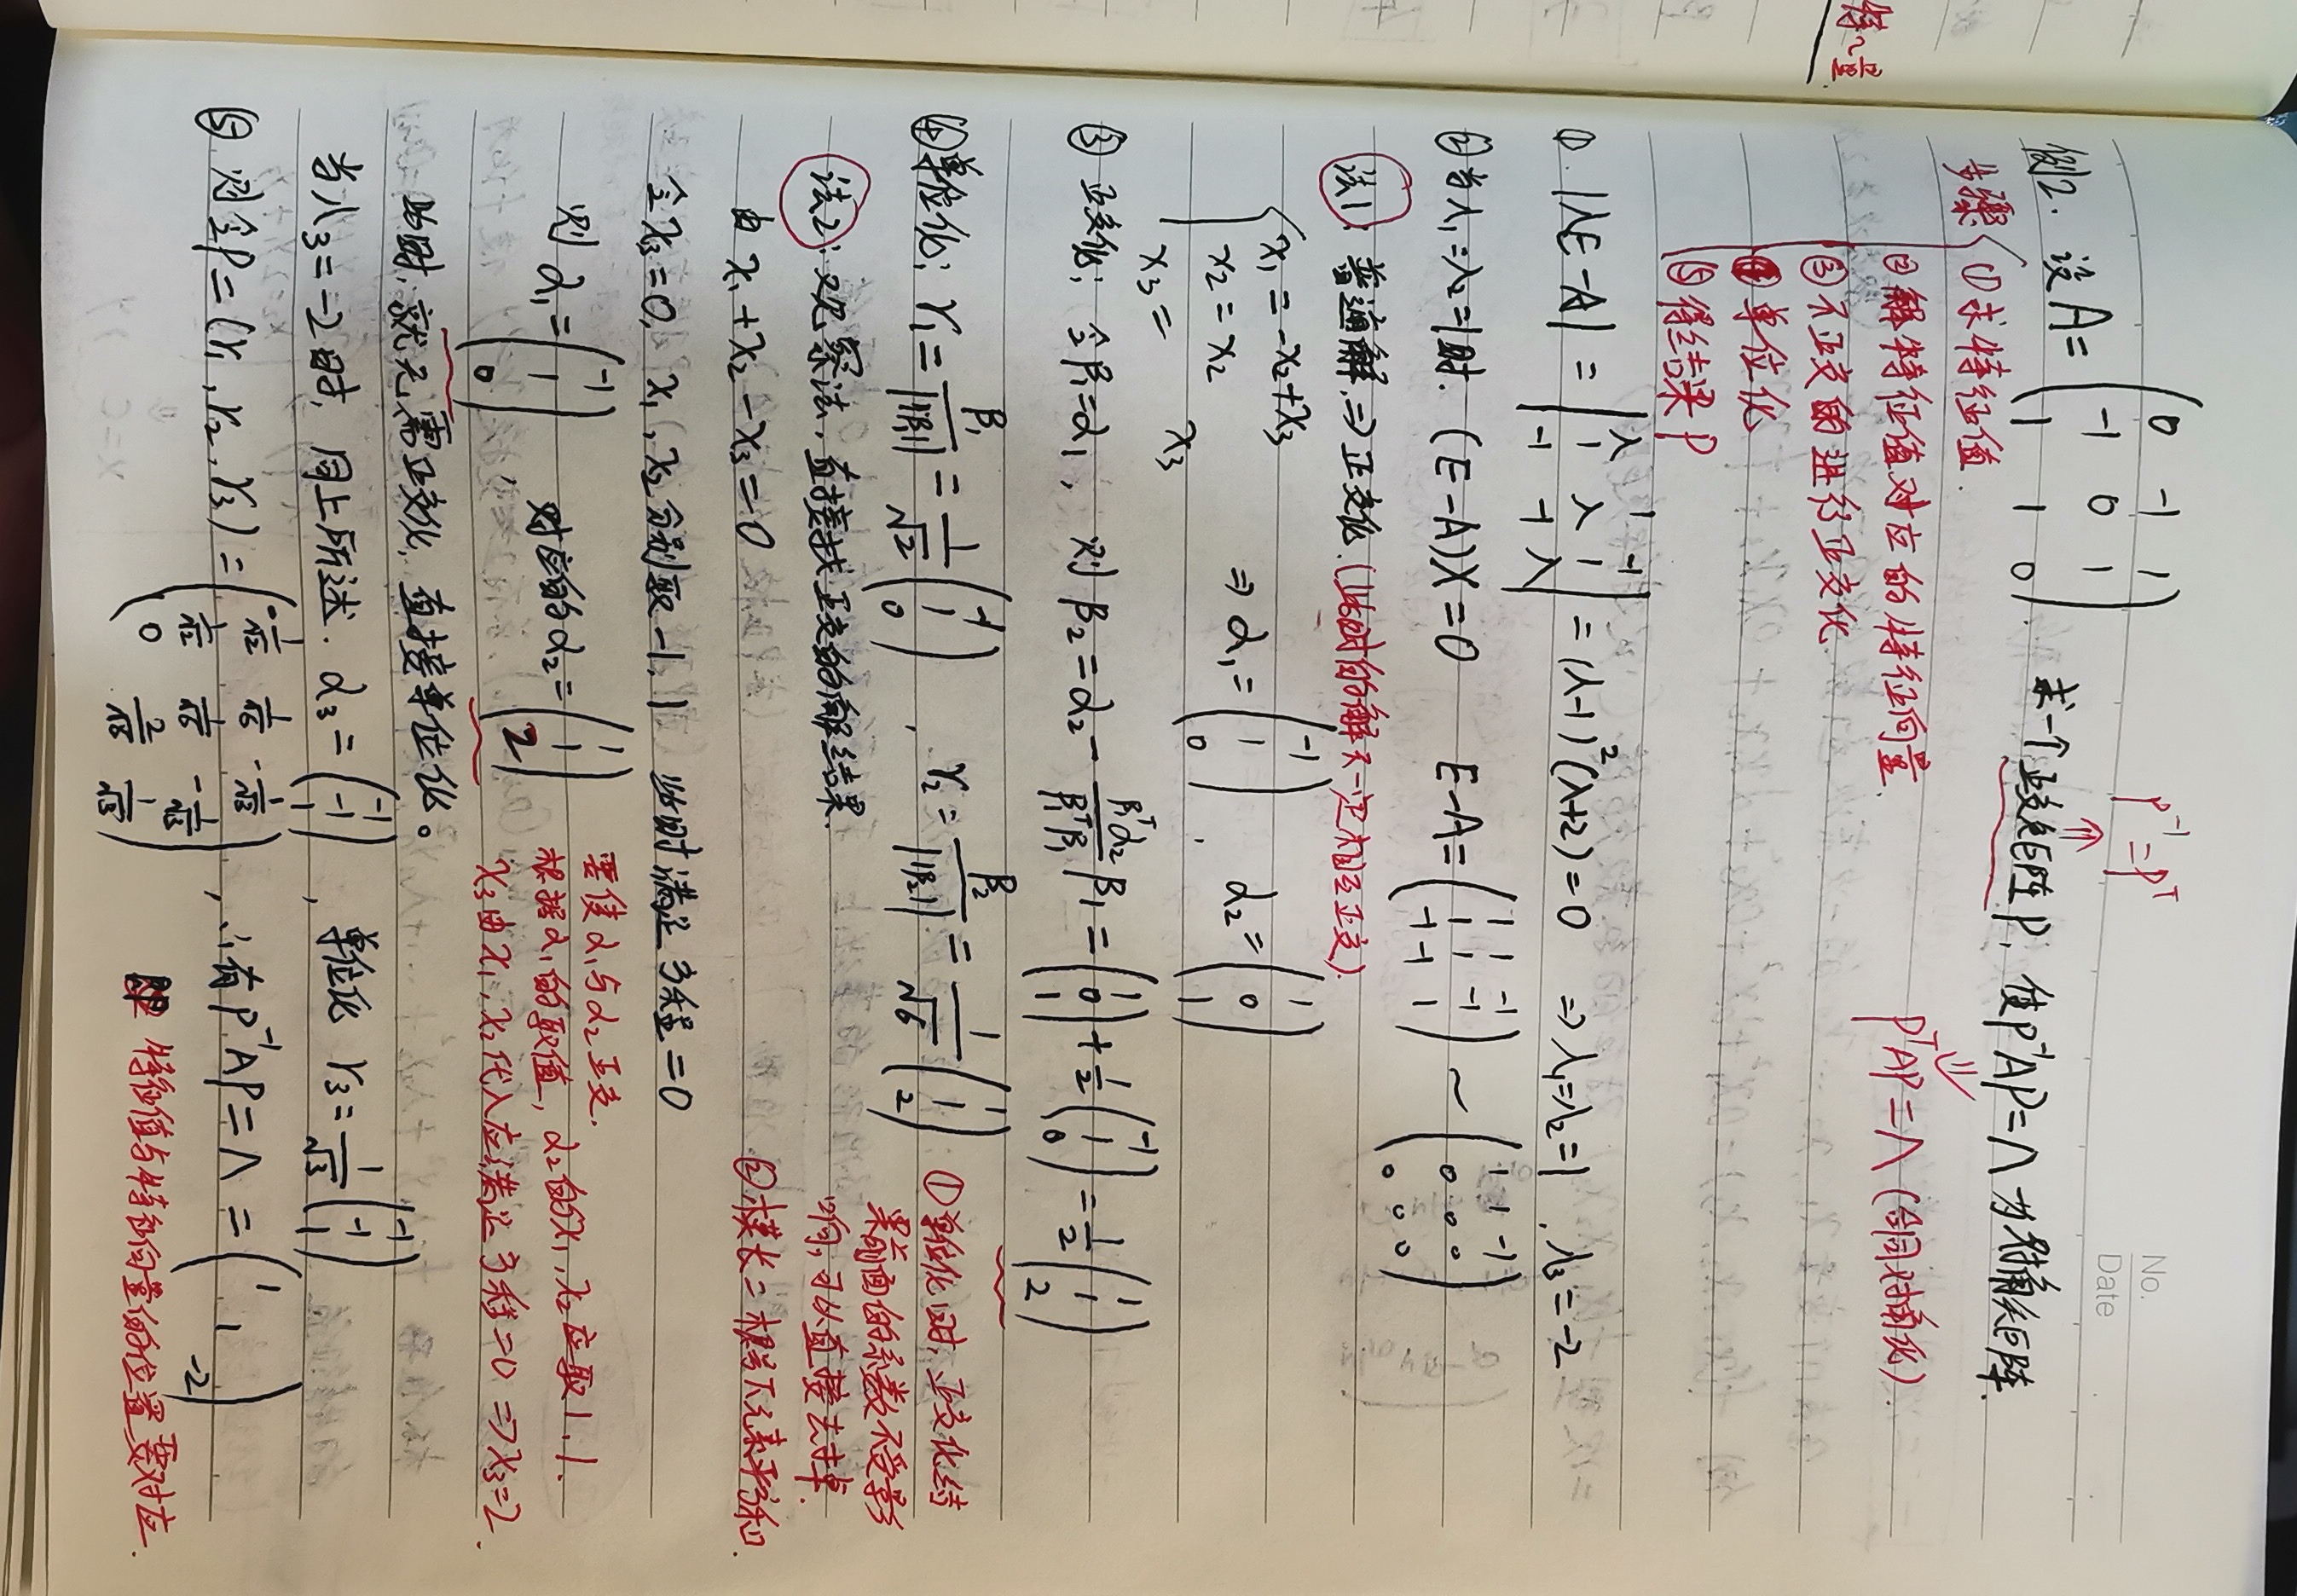 No.
Date
P⁻¹=Pᵀ
⇑
例2. 设A=(0 -1 1; -1 0 1; 1 1 0). 求一个正交矩阵P, 使P⁻¹AP=Λ为对角矩阵.
⇓
PᵀAP=Λ(合同对角化).
步骤
①求特征值.
②解特征值对应的特征向量.
③不正交的进行正交化.
④单位化
⑤得结果P
特~量.
①. |λE-A| = |λ 1 -1; 1 λ 1; -1 -1 λ| = (λ-1)²(λ+2)=0 ⇒λ₁=λ₂=1, λ₃=-2
②当λ₁=λ₂=1时. (E-A)X=0 E-A=(1 1 -1; 1 1 -1; -1 -1 1) ~ (1 1 -1; 0 0 0; 0 0 0)
法1: 普通解.⇒正交化.(此时的解不一定相互正交).
x₁=-x₂+x₃
x₂=x₂
x₃= x₃
⇒ α₁=(-1; 1; 0), α₂=(1; 0; 1)
③ 正交化; 令β₁=α₁, 则 β₂=α₂- β₁ᵀα₂/β₁ᵀβ₁ β₁=(1; 0; 1)+1/2(-1; 1; 0)=1/2(1; 1; 2)
④单位化; γ₁=β₁/||β₁||=1/√2(-1; 1; 0), γ₂=β₂/||β₂||=1/√6(1; 1; 2)
①单位化时, 正交化结
果前面的系数不受影
响, 可以直接去掉.
②模长=根号下元素平方和.
法2: 观察法, 直接找正交的解结果.
由 x₁+x₂-x₃=0
令x₃=0, x₁, x₂分别取-1, 1 此时满足方程=0
则 α₁=(-1; 1; 0), 对应的α₂=(1; 1; 2)
要使α₁与α₂正交.
根据α₁的取值, α₂的x₁, x₂应取1, 1.
x₃由x₁, x₂代入应满足方程=0 ⇒x₃=2.
此时, 就无需正交化, 直接单位化。
当λ₃=-2时, 同上所述. α₃=(-1; -1; 1), 单位化 γ₃=1/√3(-1; -1; 1)
⑤ 则令P=(γ₁, γ₂, γ₃)=(-1/√2 1/√6 -1/√3; 1/√2 1/√6 -1/√3; 0 2/√6 1/√3), ∴有P⁻¹AP=Λ=(1 1 -2)
即 特征值与特征向量的位置要对应.